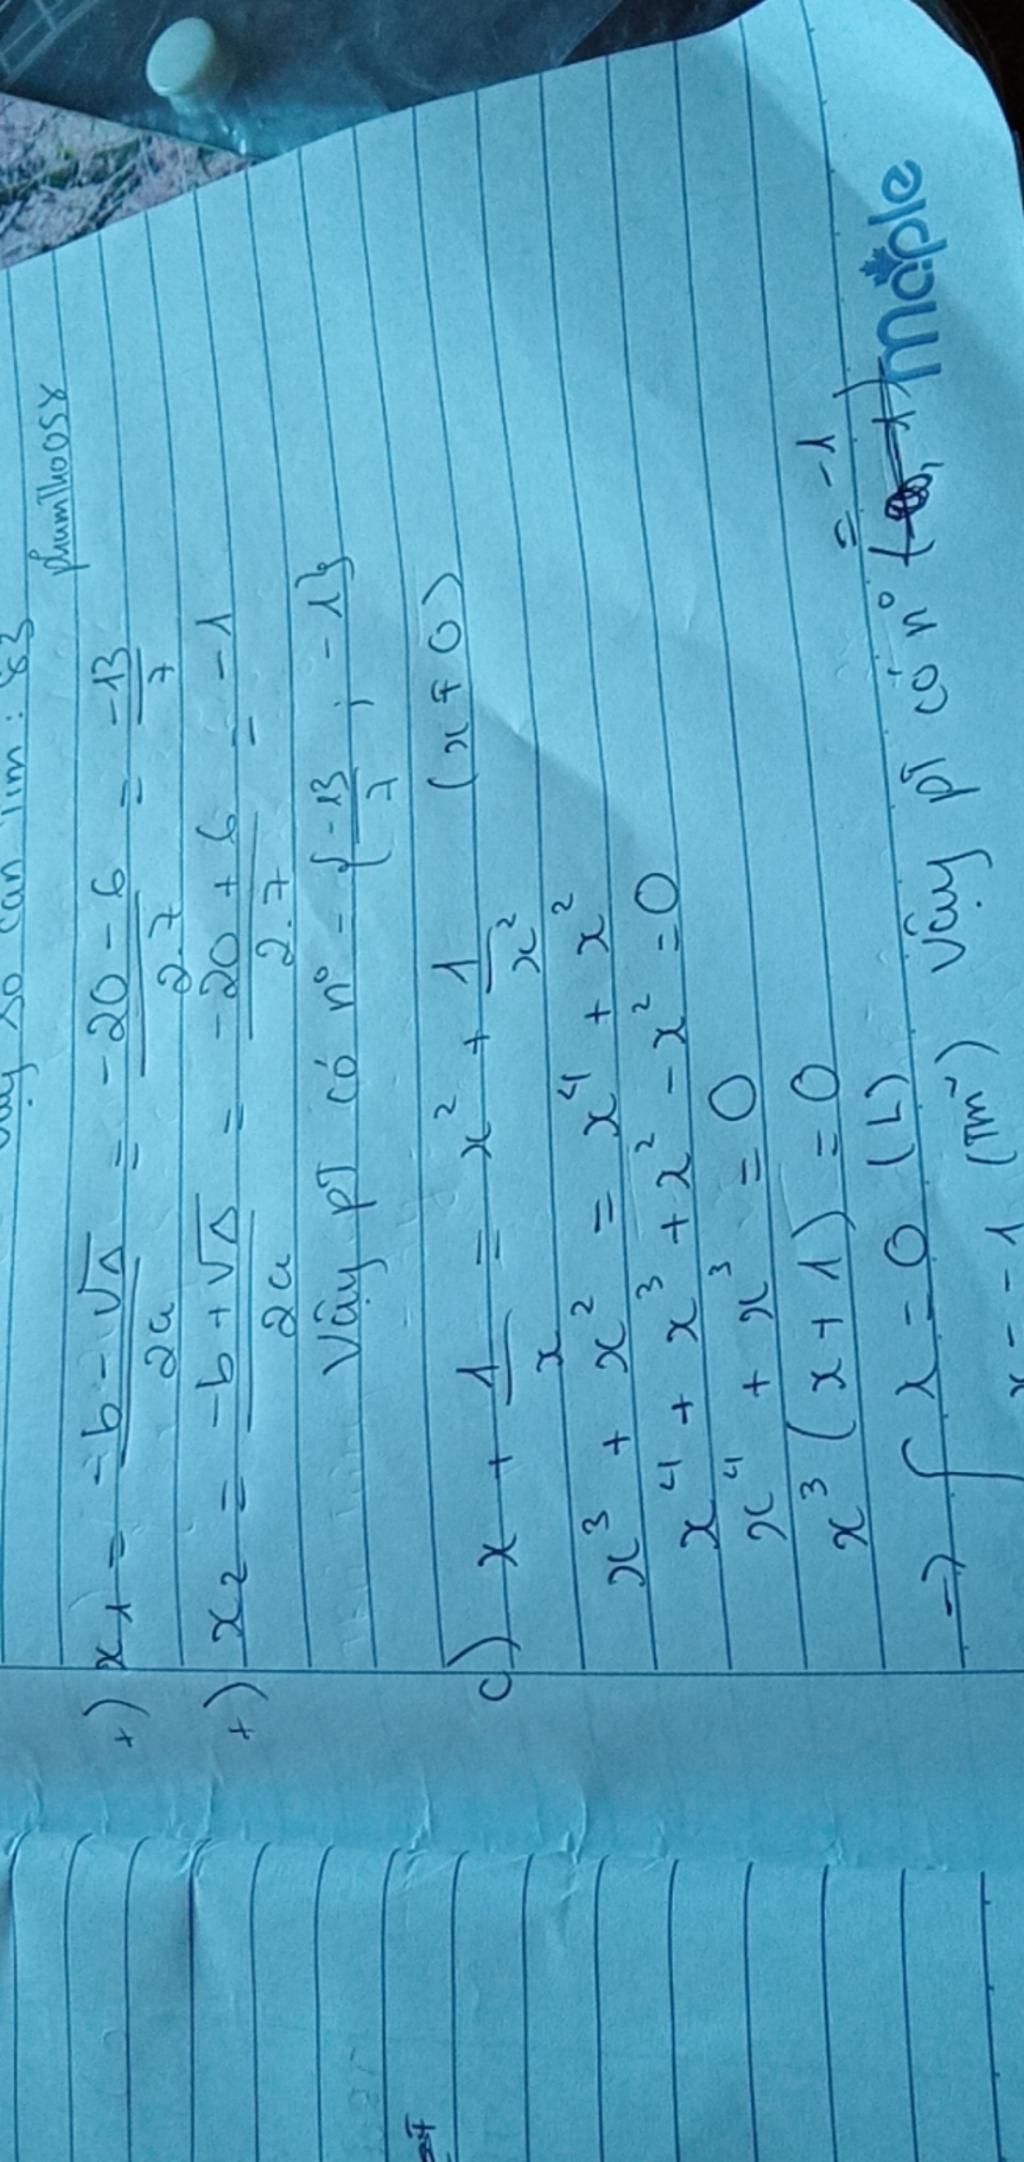 phumlhoo5x
+) x₁ = (-b - √Δ)/2a = (-20 - 6)/2.7 = -13/7
+) x₂ = (-b + √Δ)/2a = (-20 + 6)/2.7 = -1
Vậy PT có n° = {-13/7 ; -1}
c) x + 1/x = x² + 1/x² (x ≠ 0)
x³ + x² = x⁴ + x²
x⁴ + x³ + x² - x² = 0
x⁴ + x³ = 0
x³ (x + 1) = 0
→ [ x = 0 (L)
x = -1 (Tm) Vậy PT có n° = -1
maple